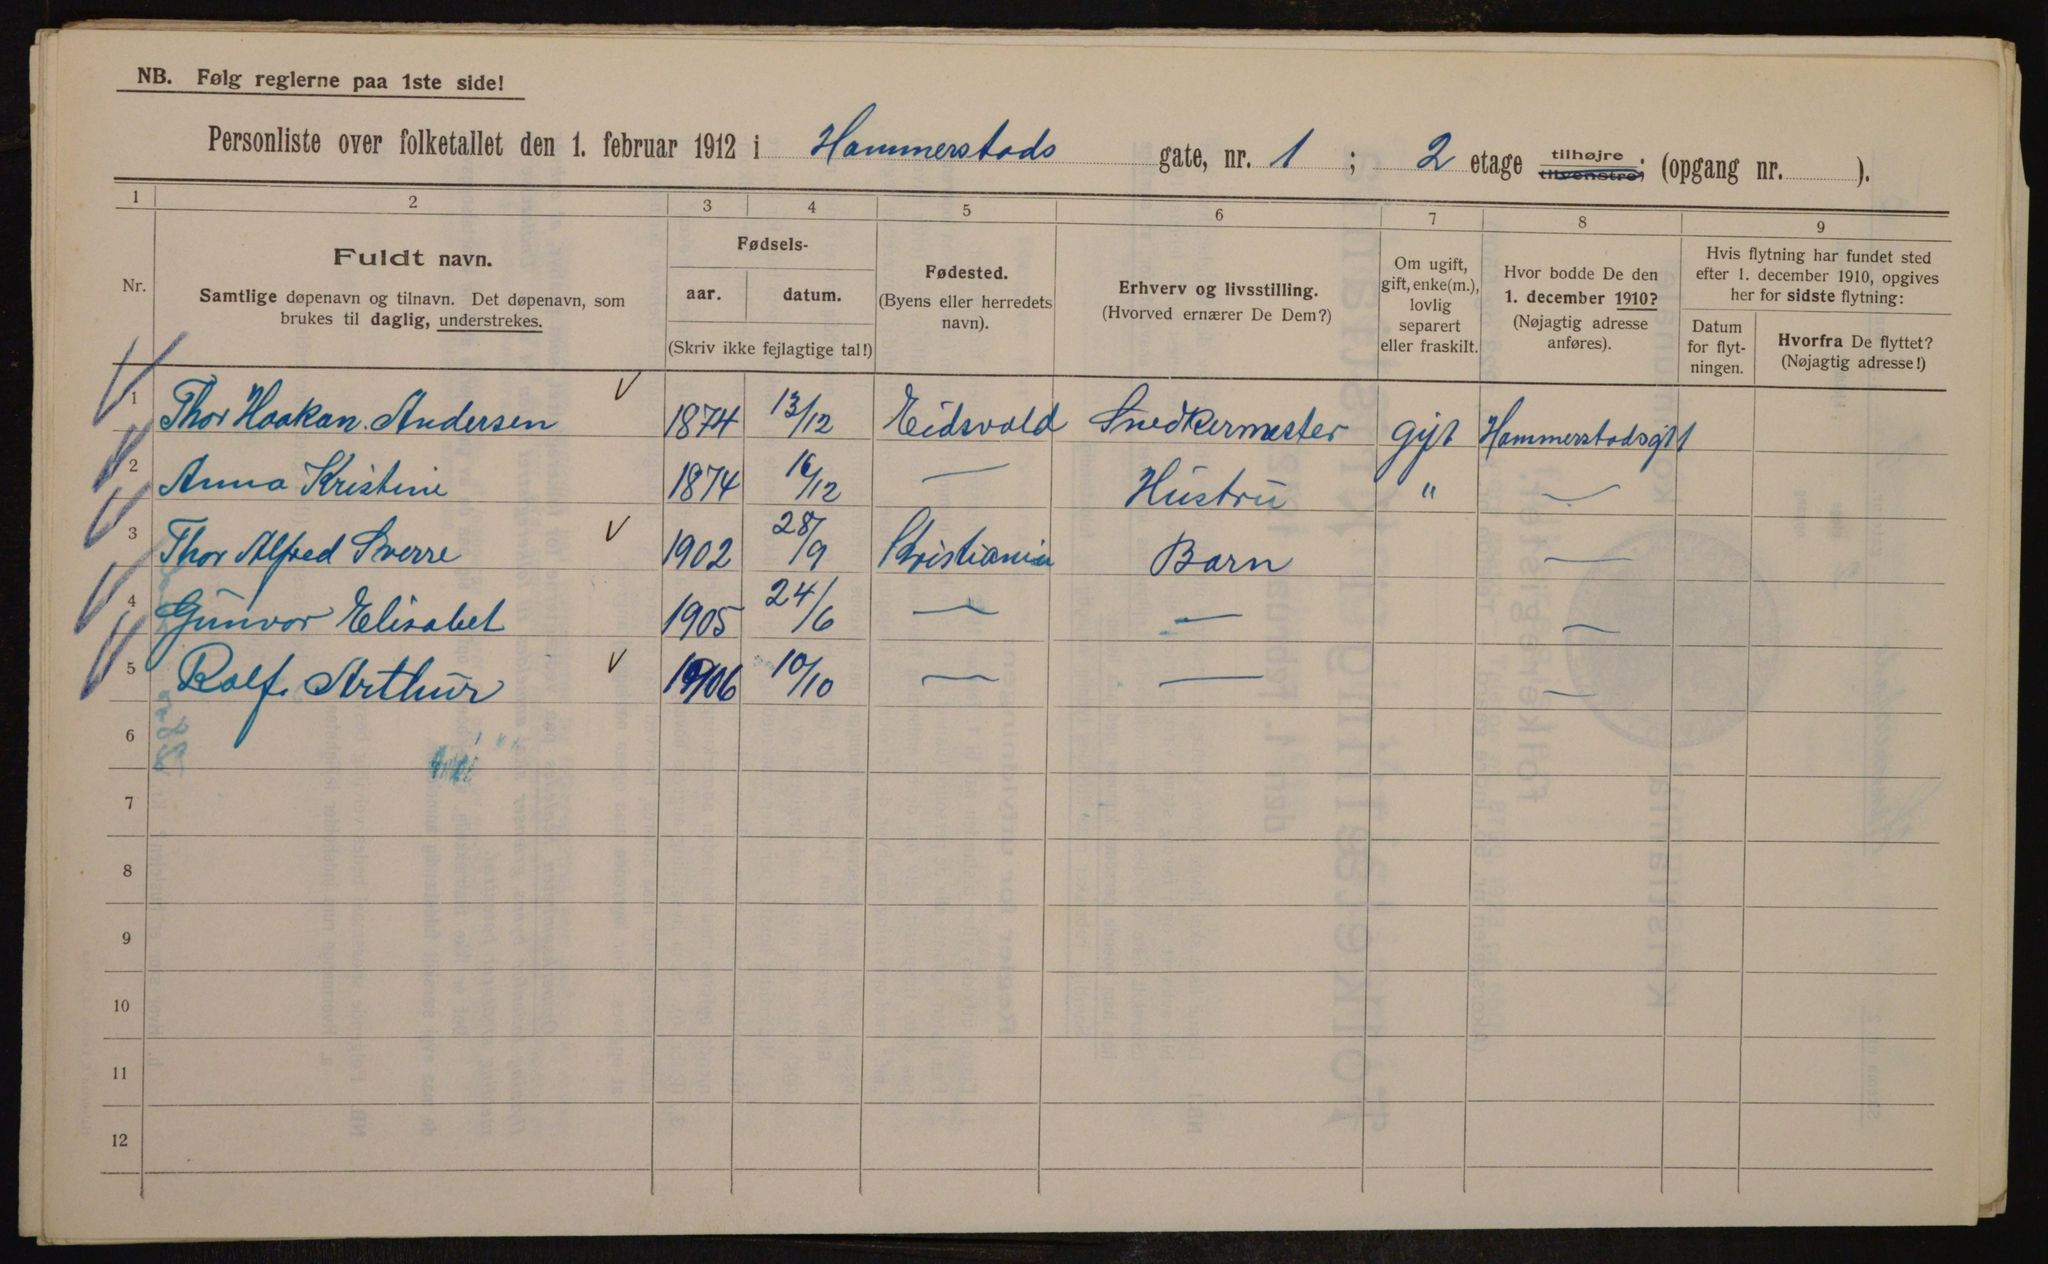 NB. Følg reglerne paa 1ste side!
Personliste over folketallet den 1. februar 1912 i Hammerstads gate, nr. 1 ; 2 etage tilhøjre tilvenstre; (opgang nr. ).
1 2 3 4 5 6 7 8 9
Nr.
Fuldt navn.
Samtlige døpenavn og tilnavn. Det døpenavn, som
brukes til daglig, understrekes.
Fødsels-
aar. datum.
(Skriv ikke fejlagtige tal!)
Fødested.
(Byens eller herredets
navn).
Erhverv og livsstilling.
(Hvorved ernærer De Dem?)
Om ugift,
gift, enke(m.),
lovlig
separert
eller fraskilt.
Hvor bodde De den
1. december 1910?
(Nøjagtig adresse
anføres).
Hvis flytning har fundet sted
efter 1. december 1910, opgives
her for sidste flytning:
Datum
for flyt-
ningen.
Hvorfra De flyttet?
(Nøjagtig adresse!)
1 Thor Haakan. Andersen 1874 13/12 Eidsvold Snedkermester gift Hammerstadsgt 1
2 Anna Kristine 1874 16/12 — Hustru " —
3 Thor Alfred Sverre 1902 28/9 Kristiania Barn —
4 Gunvor Elisabet 1905 24/6 — — —
5 Rolf. Arthur 1906 10/10 — — —
6
7
8
9
10
11
12